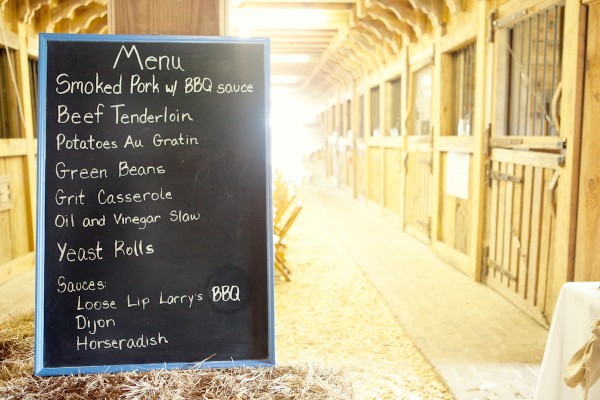 Menu
Smoked Pork w/ BBQ sauce
Beef Tenderloin
Potatoes Au Gratin
Green Beans
Grit Casserole
Oil and Vinegar Slaw
Yeast Rolls
Sauces:
Loose Lip Larry's BBQ
Dijon
Horseradish